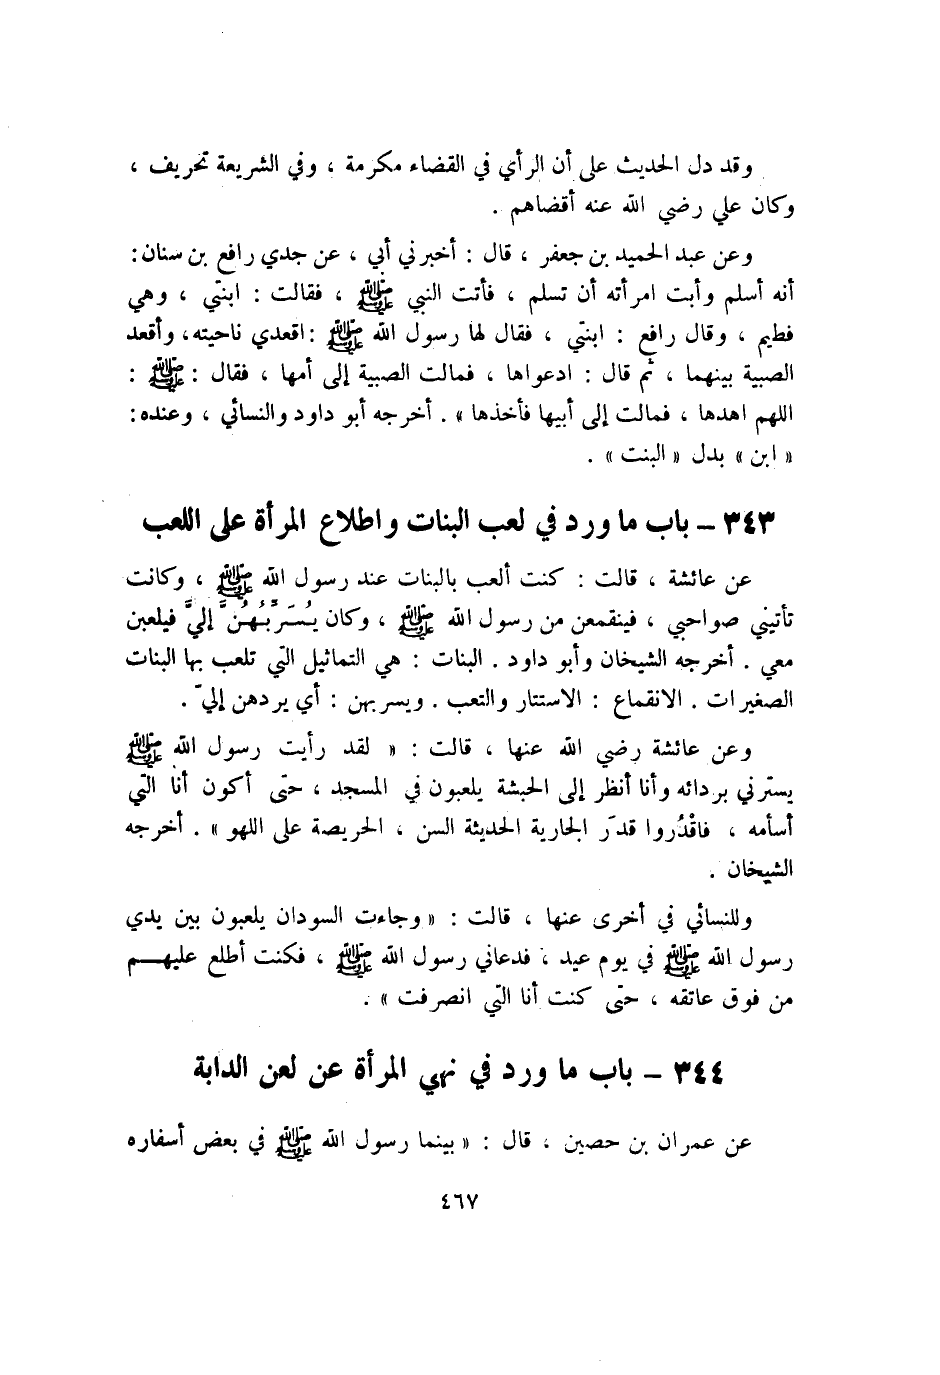 وقد دل الحديث على أن الرأي في القضاء مكرمة ، وفي الشريعة تحريف ،
وكان علي رضي الله عنه أقضاهم .
وعن عبد الحميد بن جعفر ، قال : أخبرني أبي ، عن جدي رافع بن سنان :
أنه أسلم وأبت امرأته أن تسلم ، فأتت النبي ﷺ ، فقالت : ابنتي ، وهي
فطيم ، وقال رافع : ابنتي ، فقال لها رسول الله ﷺ : اقعدي ناحيته، وأقعد
الصبية بينهما ، ثم قال : ادعواها ، فمالت الصبية إلى أمها ، فقال : ﷺ :
اللهم اهدها ، فمالت إلى أبيها فأخذها » . أخرجه أبو داود والنسائي ، وعنده :
« ابن » بدل « البنت » .
٣٤٣ – باب ما ورد في لعب البنات واطلاع المرأة على اللعب
عن عائشة ، قالت : كنت ألعب بالبنات عند رسول الله ﷺ ، وكانت
تأتيني صواحبي ، فينقمعن من رسول الله ﷺ ، وكان يُسَرِّبُهُنَّ إليَّ فيلعبن
معي . أخرجه الشيخان وأبو داود . البنات : هي التماثيل التي تلعب بها البنات
الصغيرات . الانقماع : الاستتار والتعب . ويسربهن : أي يردهن إليّ .
وعن عائشة رضي الله عنها ، قالت : « لقد رأيت رسول الله ﷺ
يسترني بردائه وأنا أنظر إلى الحبشة يلعبون في المسجد ، حتى أكون أنا التي
أسأمه ، فاقْدُروا قدَر الجارية الحديثة السن ، الحريصة على اللهو » . أخرجه
الشيخان .
وللنسائي في أخرى عنها ، قالت : « وجاءت السودان يلعبون بين يدي
رسول الله ﷺ في يوم عيد ، فدعاني رسول الله ﷺ ، فكنت أطلع عليهم
من فوق عاتقه ، حتى كنت أنا التي انصرفت » .
٣٤٤ – باب ما ورد في نهي المرأة عن لعن الدابة
عن عمران بن حصين ، قال : « بينما رسول الله ﷺ في بعض أسفاره
٤٦٧